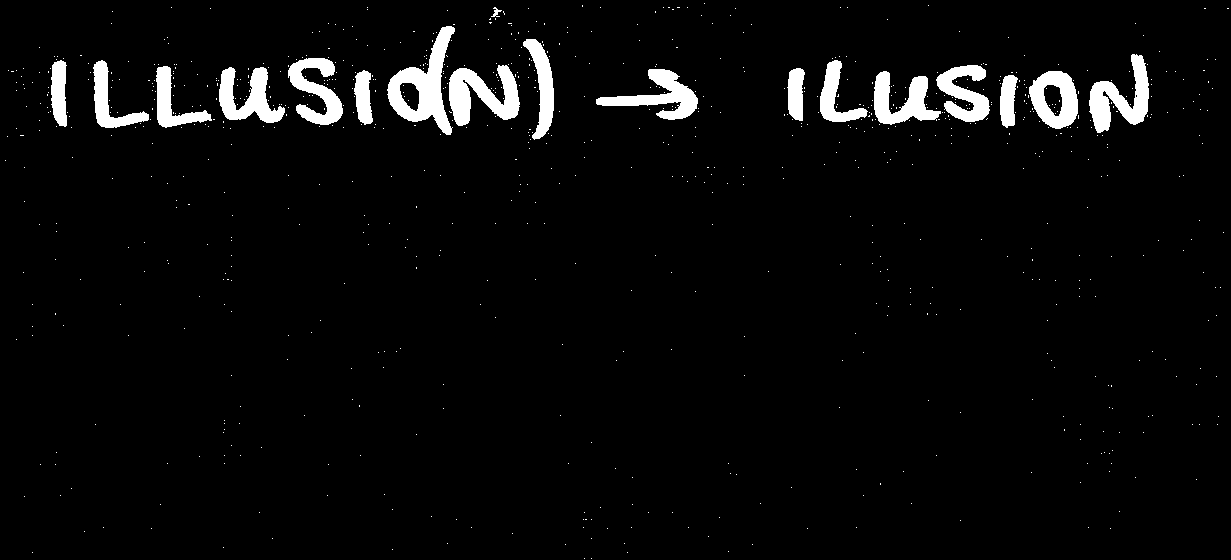 ILLUSIO(N) → ILUSION